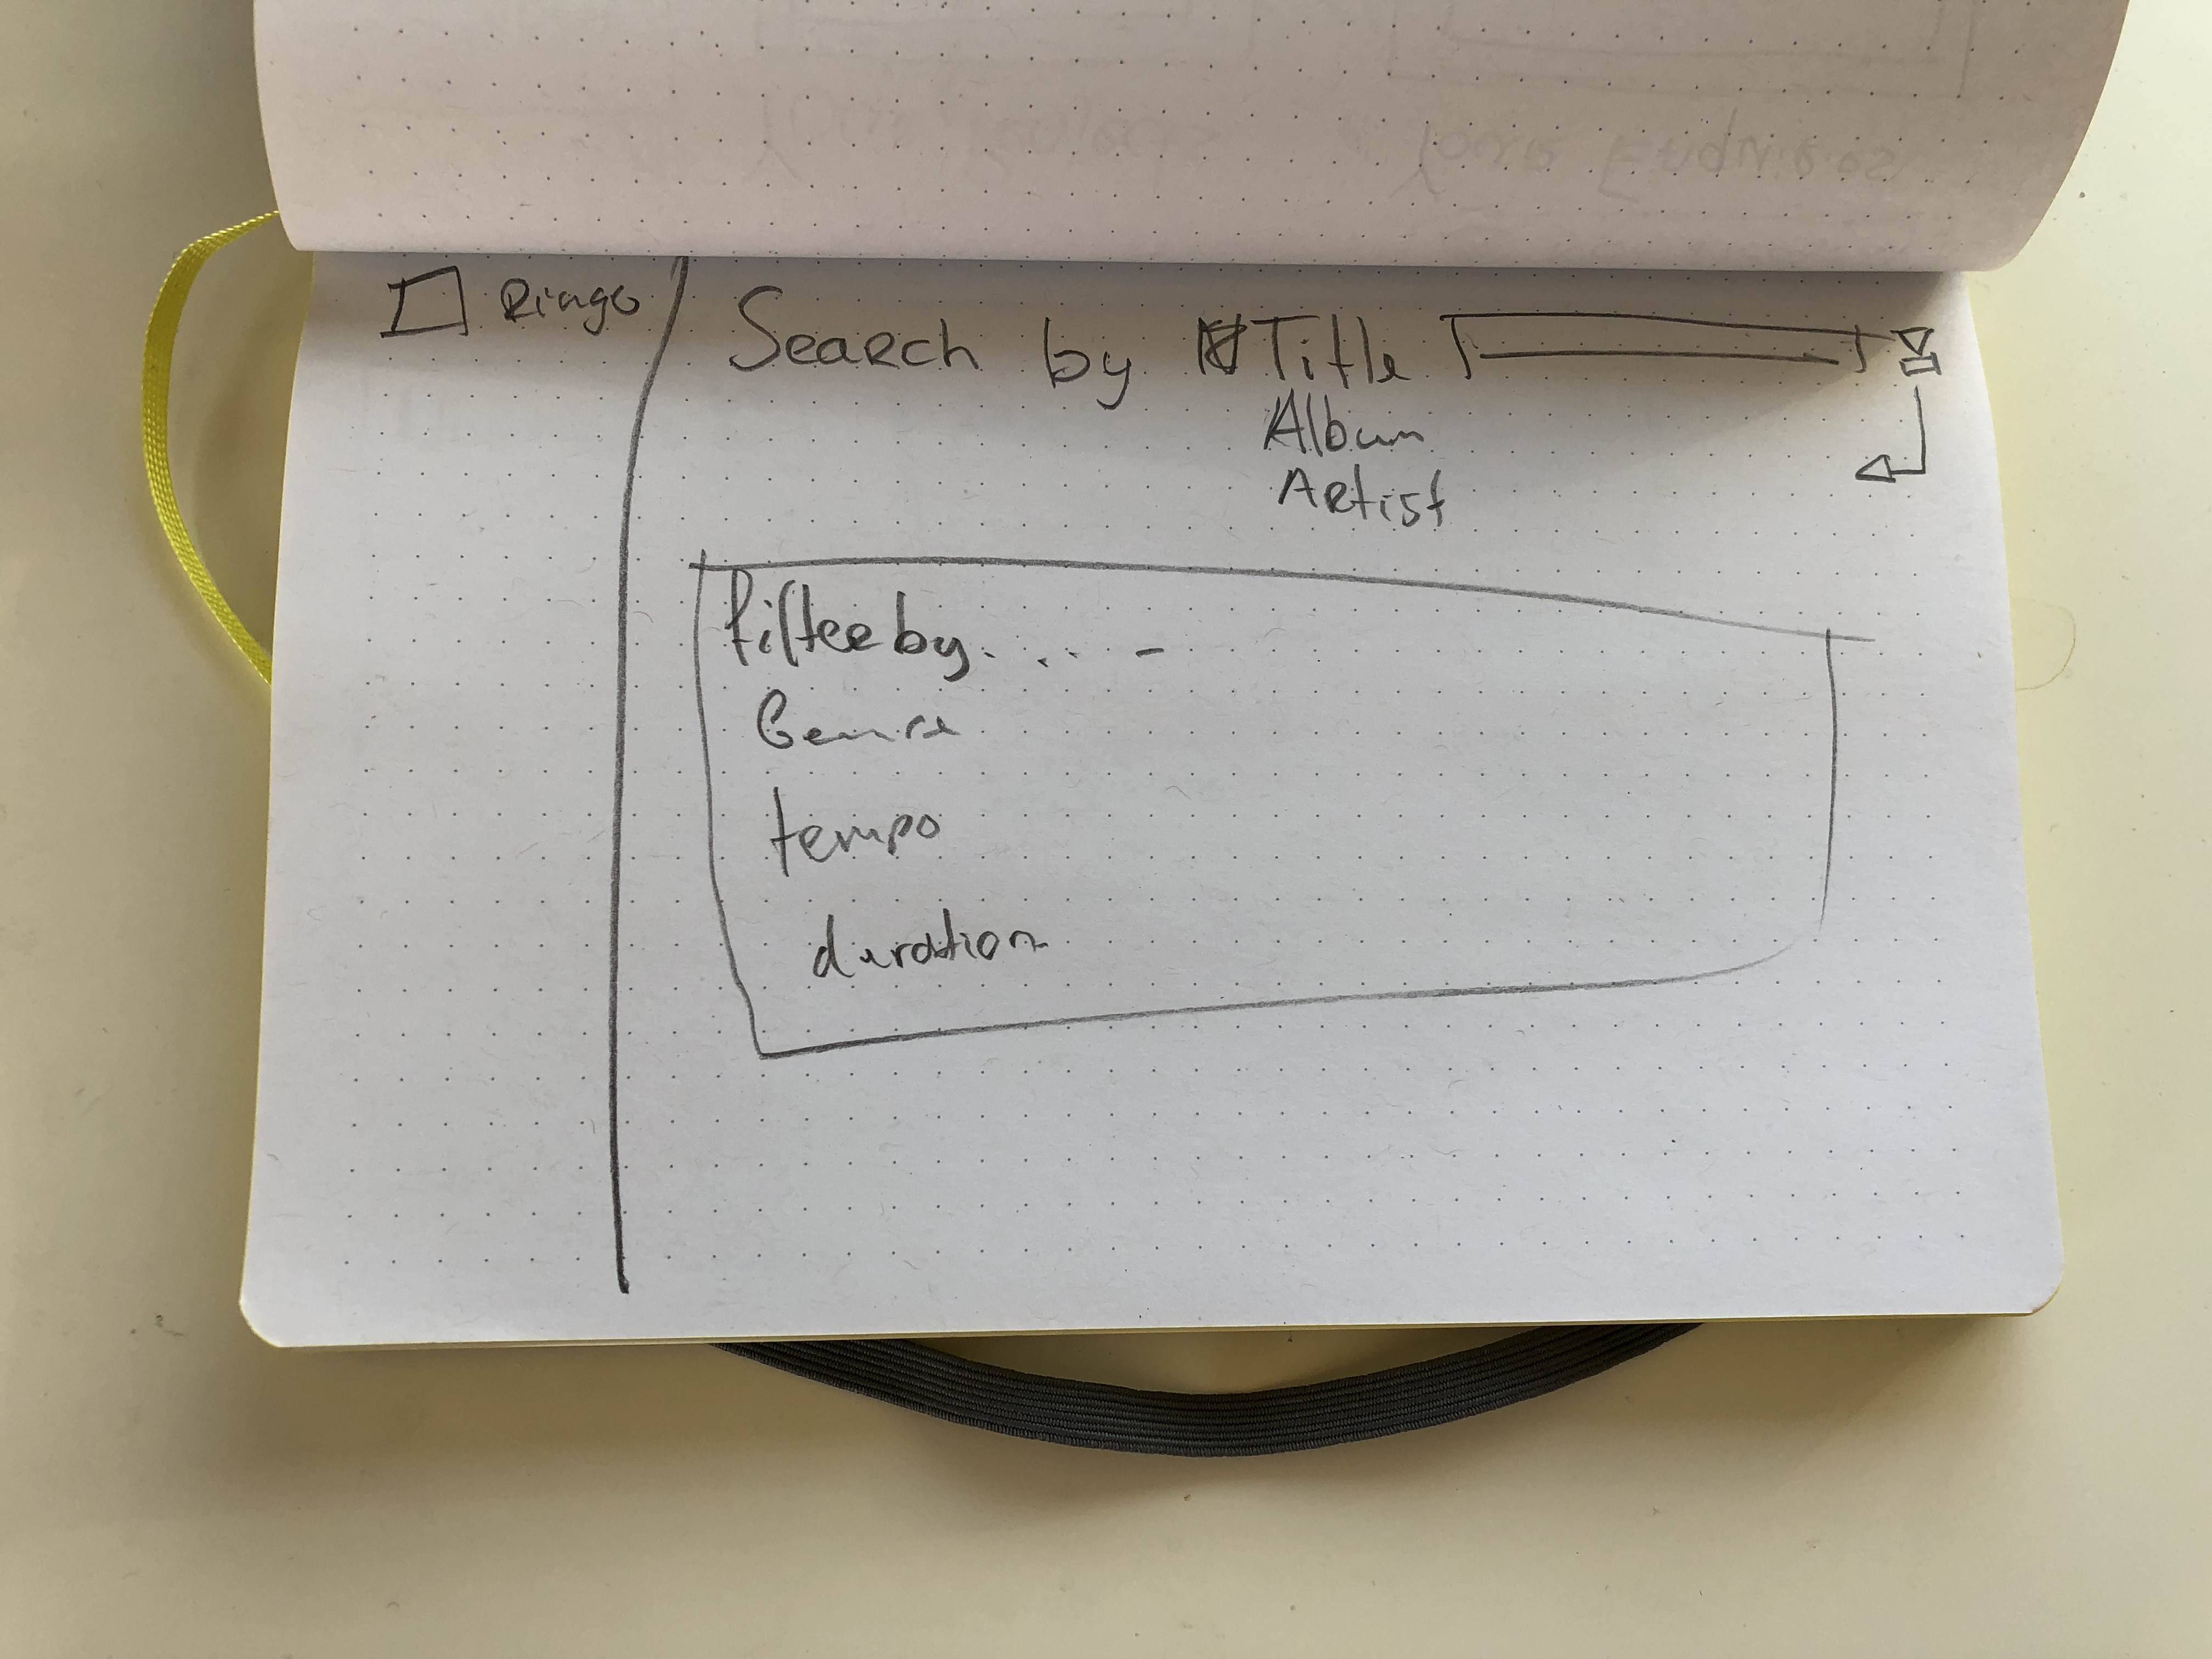 Ringo
Search by Title
Album
Artist
filter by. . . . -
Genre
tempo
duration